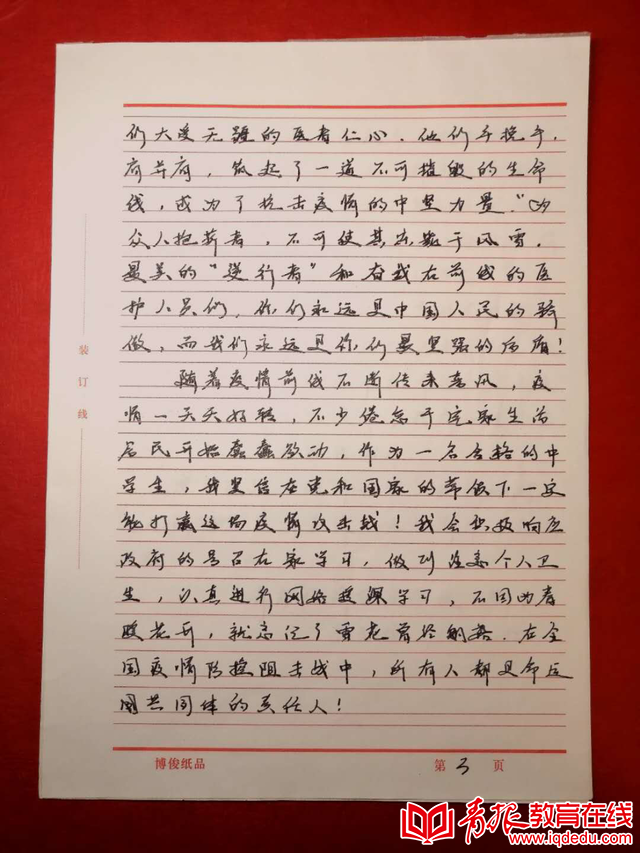 们大爱无疆的医者仁心. 他们手挽手,
肩并肩, 筑起了一道不可摧毁的生命
线, 成为了抗击疫情的中坚力量. "为
众人抱薪者, 不可使其冻毙于风雪.
最美的"逆行者"和奋战在前线的医
护人员们, 你们永远是中国人民的骄
傲, 而我们永远是你们最坚强的后盾!
随着疫情前线不断传来喜讯, 疫
情一天天好转, 不少倦怠于宅家生活
居民开始蠢蠢欲动, 作为一名合格的中
学生, 我坚信在党和国家的带领下一定
能打赢这场疫情攻击战! 我会积极响应
政府的号召在家学习, 做到注意个人卫
生, 认真进行网络授课学习, 不因为春
暖花开, 就忘记了雪花曾经飘落. 在全
国疫情防控阻击战中, 所有人都是命运
国共同体的责任人!
装订线
博俊纸品
第 3 页
青报教育在线
www.iqdedu.com